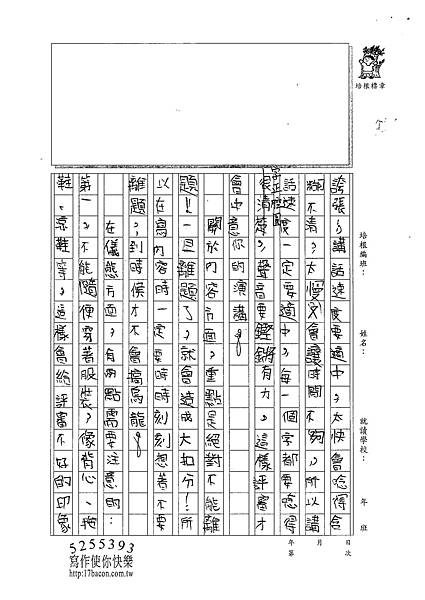 培根標章
培根編班：
姓名：
就讀學校：
年 班
年 月 日
第 次
誇張，講話速度要適中，太快會唸得含
糊不清，太慢又會讓時間不夠，所以講
話速度一定要適中，每一個字都要唸得
字正腔圓
很清楚，聲音要鏗鏘有力。這樣評審才
會中意你的演講。
關於內容方面，重點是絕對不能離
題！一旦離題了，就會造成大扣分！所
以在寫內容時一定要時時刻刻想著不要
離題，到時候才不會搞烏龍。
在儀態方面，有兩點需要注意的：
第一、不能隨便穿著服裝，像背心、拖
鞋、涼鞋等，這樣會給評審不好的印象
5255393
寫作使你快樂
http://17bacon.com.tw